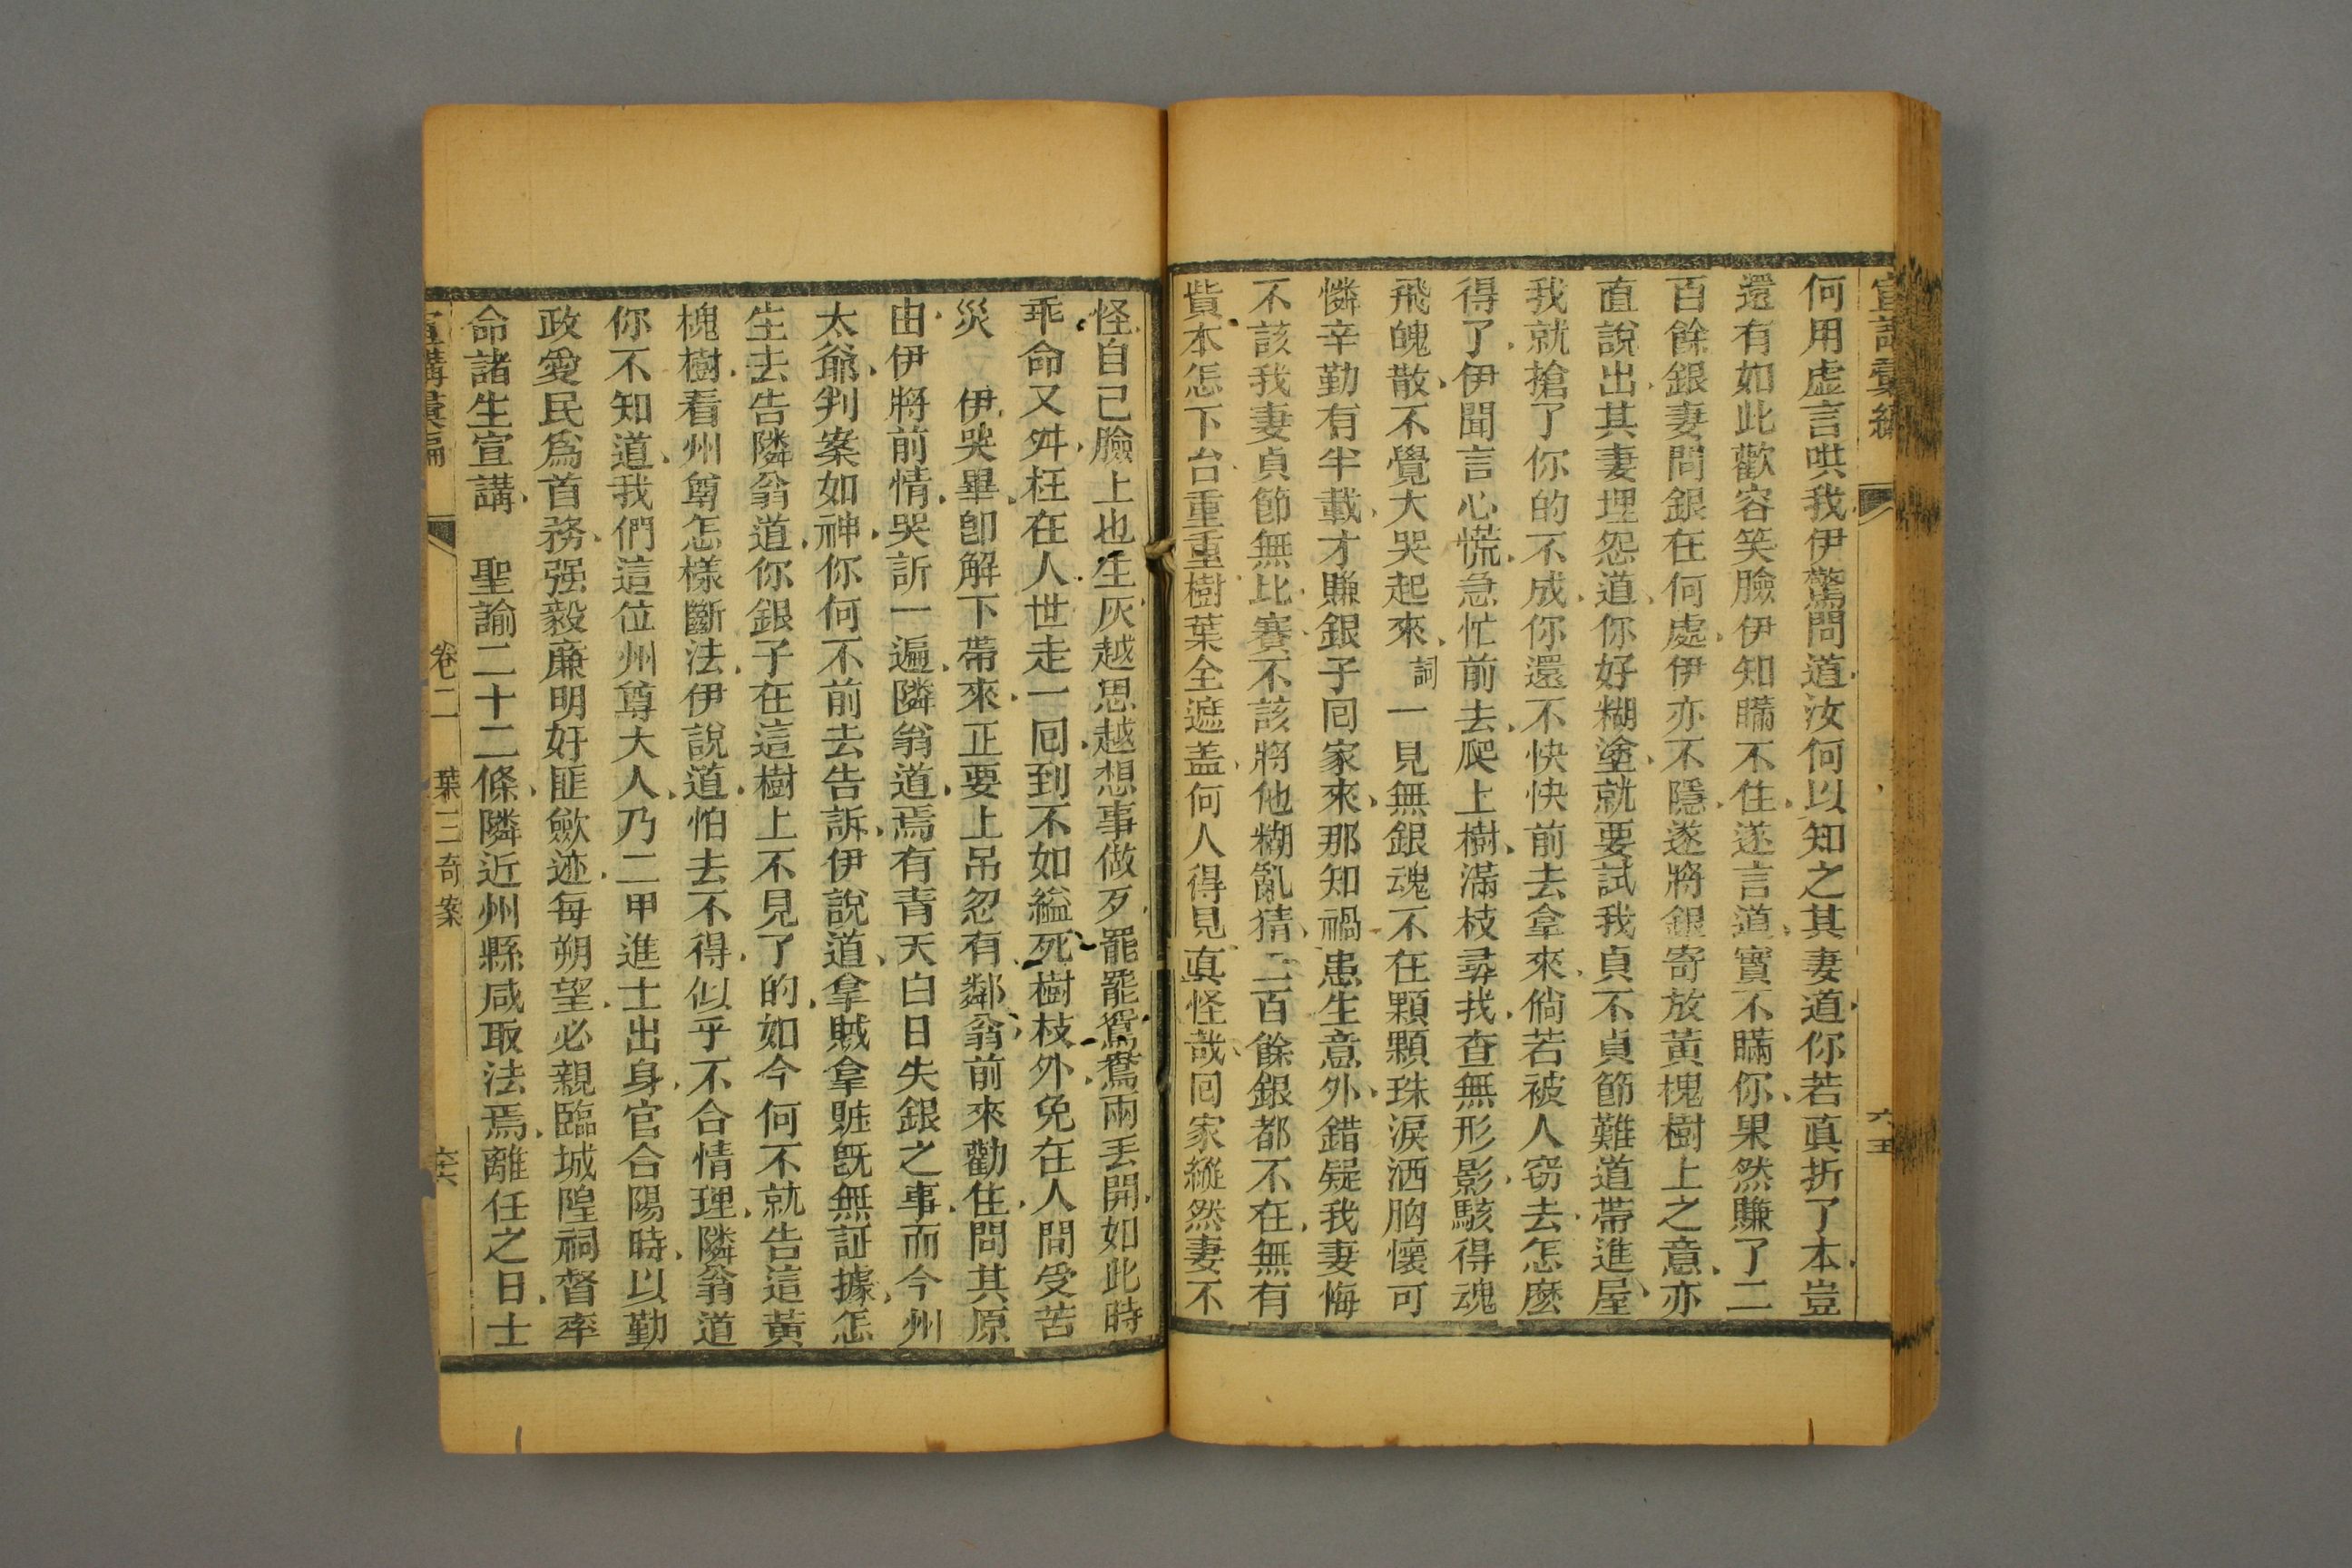 何用虛言哄我伊驚問道汝何以知之其妻道你若真折了本豈
還有如此歡容笑臉伊知瞞不住遂言道實不瞞你果然賺了二
百餘銀妻問銀在何處伊亦不隱遂將銀寄放黃槐樹上之意亦
直說出其妻埋怨道你好糊塗就要試我貞不貞節難道帶進屋
我就搶了你的不成你還不快快前去拿來倘若被人窃去怎麼
得了伊聞言心慌急忙前去爬上樹滿枝尋找查無形影駭得魂
飛魄散不覺大哭起來詞一見無銀魂不在顆顆珠淚洒胸懷可
憐辛勤有半載才賺銀子囘家來那知禍患生意外錯疑我妻悔
不該我妻貞節無比賽不該將他糊亂猜二百餘銀都不在無有
貲本怎下台重重樹葉全遮盖何人得見真怪哉囘家縱然妻不
六五
怪自己臉上也生灰越思越想事做歹罷罷鴛鴦兩丟開如此時
乖命又舛枉在人世走一囘到不如縊死樹枝外免在人間受苦
災　伊哭畢卽解下帶來正要上吊忽有鄰翁前來勸住問其原
由伊將前情哭訴一遍隣翁道焉有青天白日失銀之事而今州
太爺判案如神你何不前去告訴伊說道拿賊拿賍旣無証據怎
生去告隣翁道你銀子在這樹上不見了的如今何不就告這黃
槐樹看州尊怎樣斷法伊說道怕去不得似乎不合情理隣翁道
你不知道我們這位州尊大人乃二甲進士出身官合陽時以勤
政愛民爲首務强毅廉明奸匪歛迹每朔望必親臨城隍祠督率
命諸生宣講　聖諭二十二條隣近州縣咸取法焉離任之日士
宣講彙編　卷二　葉三奇案　六六